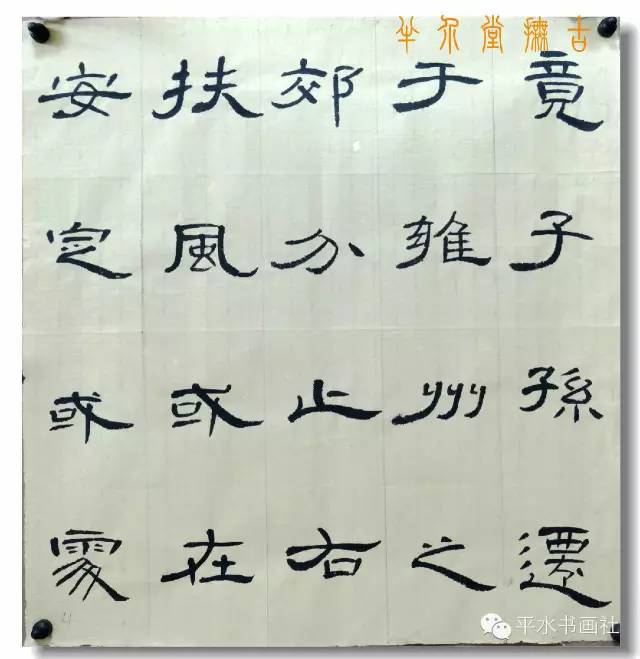 半堂古
竟子孫遷
于雍州之
郊分止右
扶風或在
安定或處
平水书画社